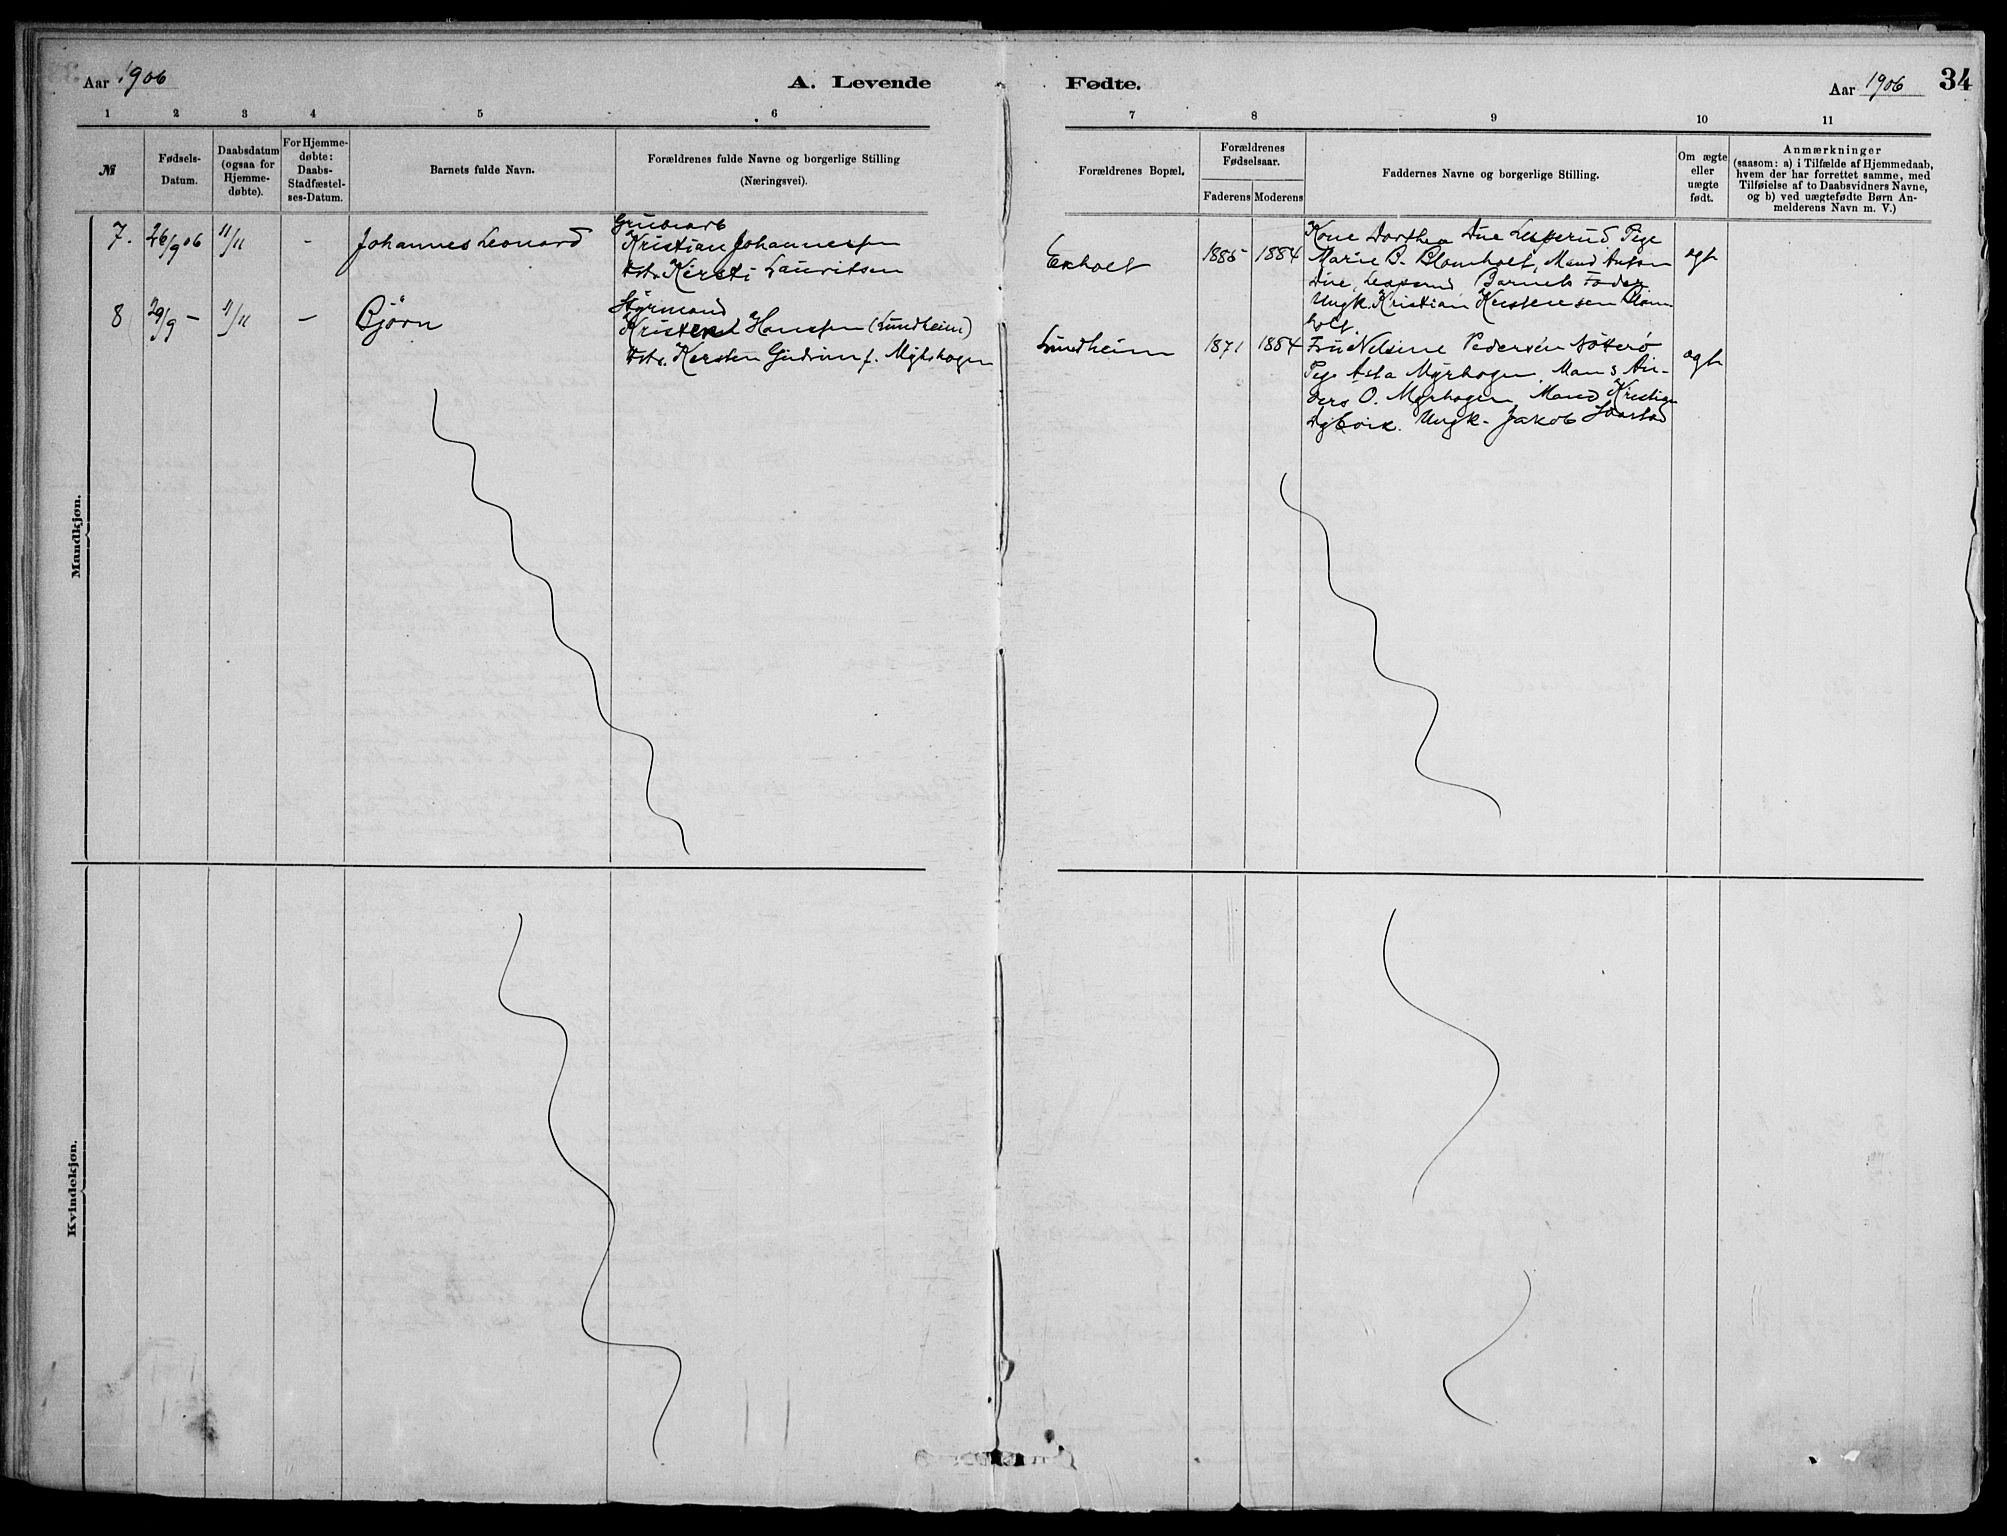 Aar 1906
A. Levende
Fødte.
Aar 1906
34
1 2 3 4 5 6 7 8 9 10 11
№
Fødsels-
Datum.
Daabsdatum
(ogsaa for
Hjemme-
døbte).
For Hjemme-
døbte:
Daabs-
Stadfæstel-
ses-Datum.
Barnets fulde Navn.
Forældrenes fulde Navne og borgerlige Stilling
(Næringsvei).
Forældrenes Bopæl.
Forældrenes
Fødselsaar.
Faderens Moderens
Faddernes Navne og borgerlige Stilling.
Om ægte
eller
uægte
født.
Anmærkninger
(saasom: a) i Tilfælde af Hjemmedaab,
hvem der har forrettet samme, med
Tilføielse af to Daabsvidners Navne,
og b) ved uægtefødte Børn An-
melderens Navn m. V.)
Mandkjøn.
7. 26/9 06 11/11 - Johannes Leonard
Grubearb
Kristian Johannessen
Hst. Kirsti Lauritsen
Exholt 1885 1884
Kone Dorthea Due Pige
Marie B. Blomholt, Mand Anton
Due, Barnets Fader
Ungk. Kristian Kristensen Blom-
holt.
ægt
8 29/9 - 11/11 - Bjørn
Styrmand
Kristen Hansen (Lundheim)
Hst. Kirsten Gudrun f. Myhrhagen
Lundheim 1871 1884
Fru Nelsine Pedersen Nøtterø
Pige Asta Myrhagen, Mand An-
ders O. Myrhagen Mand Kristian
Ungk. Jakob
ægt
Kvindekjøn.